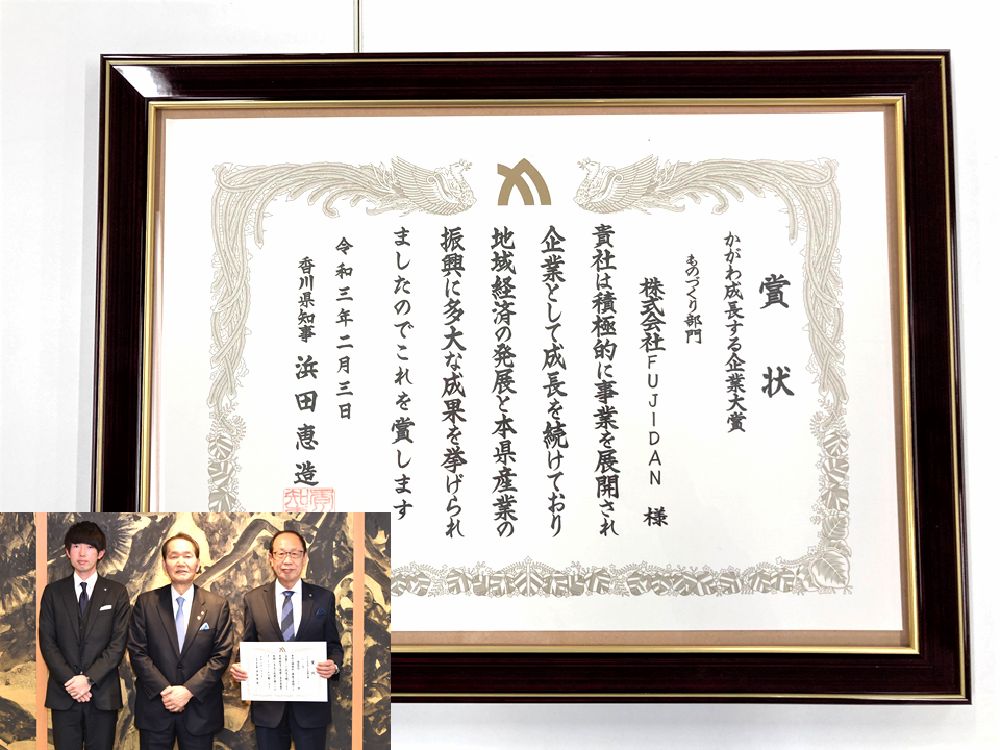 賞状
かがわ成長する企業大賞
ものづくり部門
株式会社FUJIDAN 様
貴社は積極的に事業を展開され
企業として成長を続けており
地域経済の発展と本県産業の
振興に多大な成果を挙げられ
ましたのでこれを賞します
令和三年二月三日
香川県知事 浜田恵造